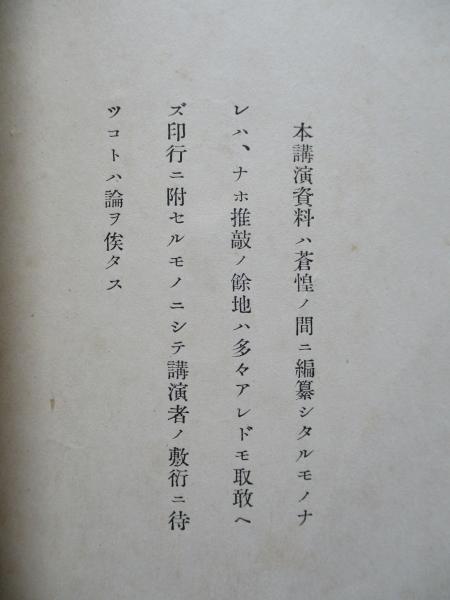 本講演資料ハ蒼惶ノ間ニ編纂シタルモノナ
レハ、ナホ推敲ノ餘地ハ多々アレドモ取敢ヘ
ズ印行ニ附セルモノニシテ講演者ノ敷衍ニ待
ツコトハ論ヲ俟タス